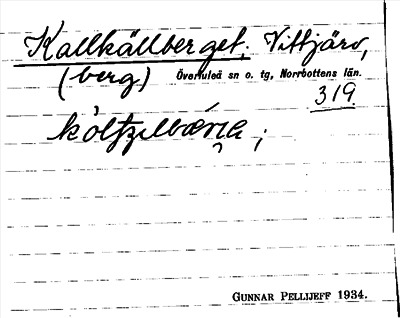 Kallkällberget. Vittjärv,
(berg) Överluleå sn o. tg, Norrbottens län.
319
GUNNAR PELLIJEFF 1934.